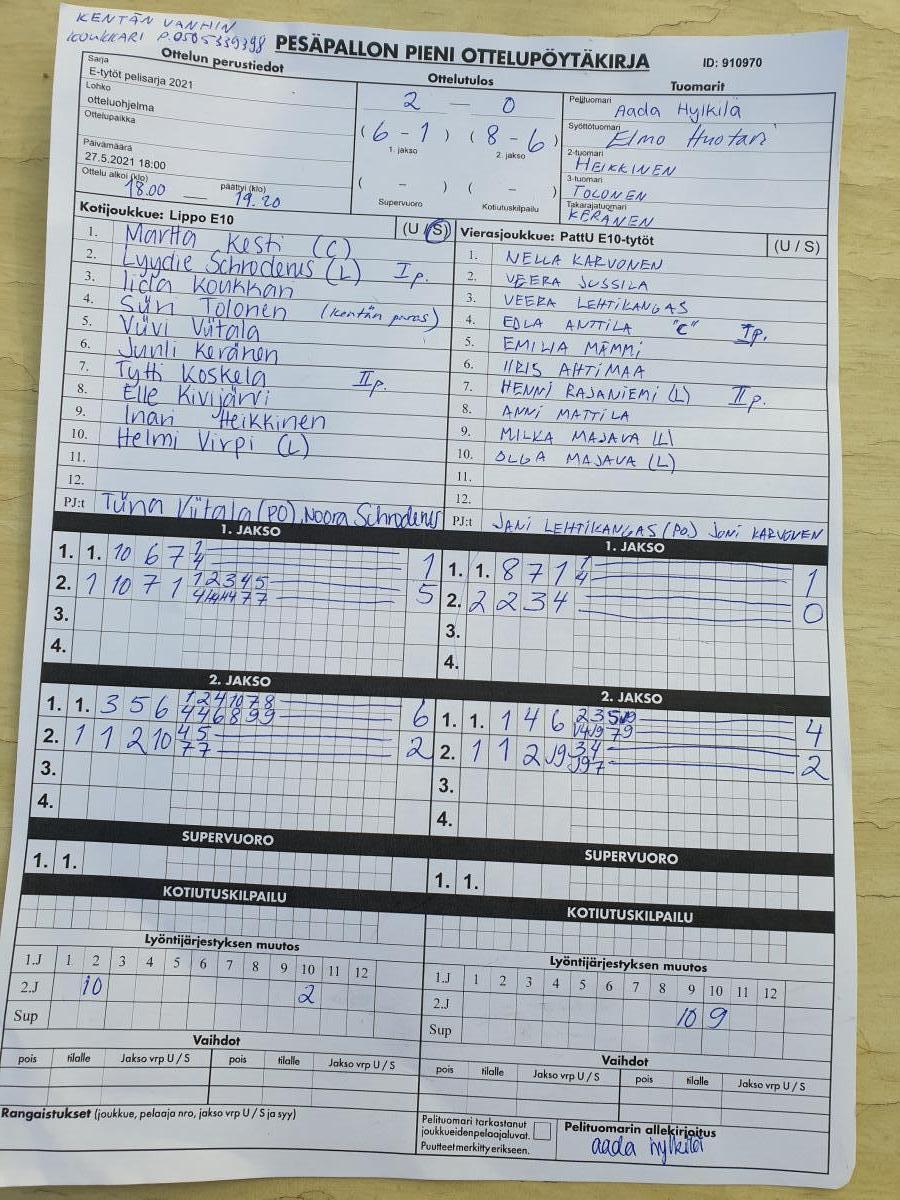 KENTÄN VANHIN
KOUKKARI P.0505339398
PESÄPALLON PIENI OTTELUPÖYTÄKIRJA
ID: 910970
Ottelun perustiedot
Sarja
E-tytöt pelisarja 2021
Lohko
otteluohjelma
Ottelupaikka
Päivämäärä
27.5.2021 18:00
Ottelu alkoi (klo) päättyi (klo)
18.00 — 19.20
Ottelutulos
2 — 0
( 6 - 1 ) ( 8 - 6 )
1. jakso 2. jakso
( - ) ( - )
Supervuoro Kotiutuskilpailu
Tuomarit
Pelituomari
Aada Hylkilä
Syöttötuomari
Elmo Huotari
2-tuomari
HEIKKINEN
3-tuomari
TOLONEN
Takarajatuomari
KERÄNEN
Kotijoukkue: Lippo E10 (U / S)
1. Martta Kesti (C)
2. Lyydie Schroderus (L) I p.
3. Iida Koukkari
4. Siiri Tolonen (kentän paras)
5. Viivi Viitala
6. Junli Keränen
7. Tytti Koskela II p.
8. Elle Kivijärvi
9. Inari Heikkinen
10. Helmi Virpi (L)
11.
12.
PJ:t Tiina Viitala (PO), Noora Schroderus
Vierasjoukkue: PattU E10-tytöt (U / S)
1. NELLA KARVONEN
2. VEERA JUSSILA
3. VEERA LEHTIKANGAS
4. EDLA ANTTILA "C" I p.
5. EMILIA MÄMMI
6. IIRIS AHTIMAA
7. HENNI RAJANIEMI (L) II p.
8. ANNI MATTILA
9. MILKA MAJAVA (L)
10. OLGA MAJAVA (L)
11.
12.
PJ:t JANI LEHTIKANGAS (PO) JONI KARVONEN
1. JAKSO
1. 1. 10 6 7 1 1
4
2. 1 10 7 1 1 2 3 4 5 5
3.
4.
1. JAKSO
1. 1. 8 7 1 1 1
4
2. 2 2 3 4 0
3.
4.
2. JAKSO
1. 1. 3 5 6 1 2 4 10 7 8 6
4 4 6 8 9 9
2. 1 1 2 10 4 5 2
7 7
3.
4.
2. JAKSO
1. 1. 1 4 6 2 3 5 4
2. 1 1 2 3 4 2
3.
4.
SUPERVUORO
1. 1.
SUPERVUORO
1. 1.
KOTIUTUSKILPAILU
KOTIUTUSKILPAILU
Lyöntijärjestyksen muutos
1.J 1 2 3 4 5 6 7 8 9 10 11 12
2.J 10 2
Sup
Lyöntijärjestyksen muutos
1.J 1 2 3 4 5 6 7 8 9 10 11 12
2.J 10 9
Sup
Vaihdot
pois tilalle Jakso vrp U / S pois tilalle Jakso vrp U / S
Vaihdot
pois tilalle Jakso vrp U / S pois tilalle Jakso vrp U / S
Rangaistukset (joukkue, pelaaja nro, jakso vrp U / S ja syy)
Pelituomari tarkastanut
joukkueidenpelaajaluvat.
Puutteet merkitty erikseen.
Pelituomarin allekirjoitus
aada hylkilä